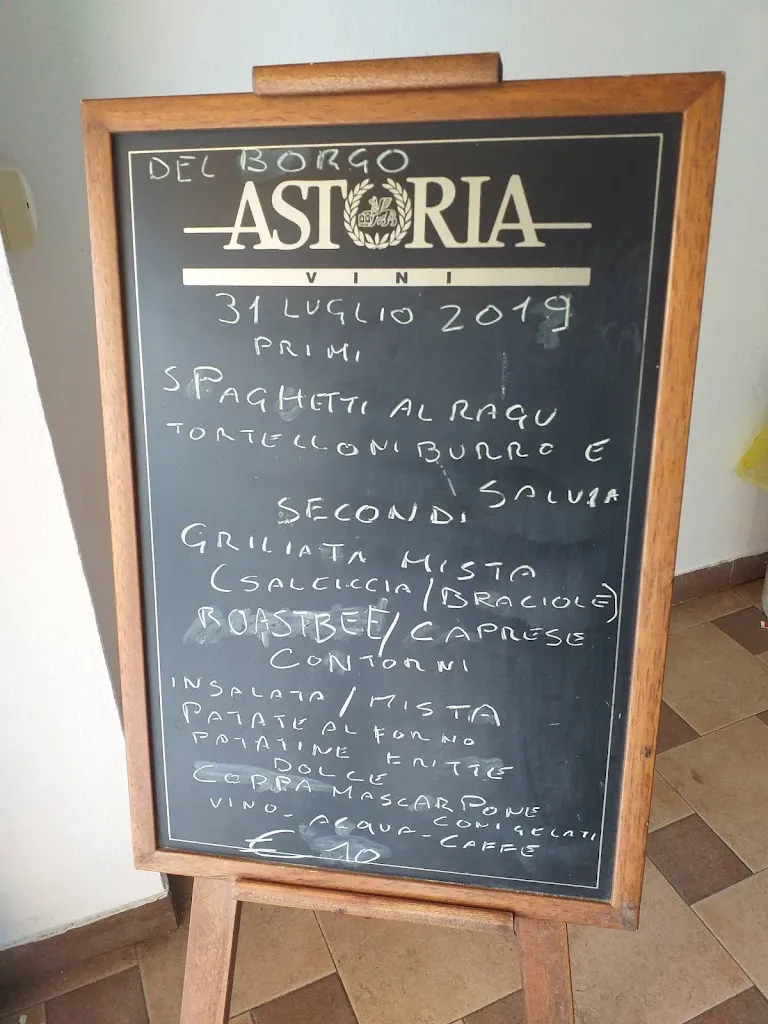 DEL BORGO
ASTORIA
VINI
31 LUGLIO 2019
PRIMI
SPAGHETTI AL RAGU
TORTELLONI BURRO E
SALVIA
SECONDI
GRILIATA MISTA
(SALCICCIA/BRACIOLE)
ROASTBEE/CAPRESE
CONTORNI
INSALATA/MISTA
PATATE AL FORNO
PATATINE FRITTE
DOLCE
COPPA MASCARPONE
CONI GELATI
VINO-ACQUA-CAFFE
€ 10